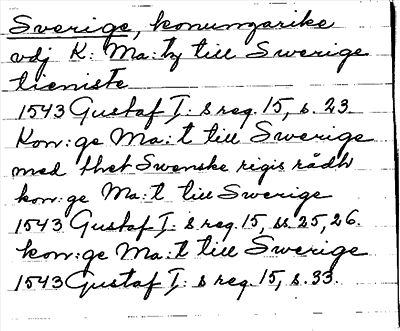 Sverige, konungarike
vdj K: Ma:tz till Swerige
tieniste
1543 Gustaf I: s reg. 15, s. 23.
Kon:ge Ma:t till Swerige
med thet Swenske rigis rådh
kon:ge Ma:t till Swerige
1543 Gustaf I: s reg. 15, ss. 25, 26.
kon:ge Ma:t till Swerige
1543 Gustaf I: s reg. 15, s. 33.